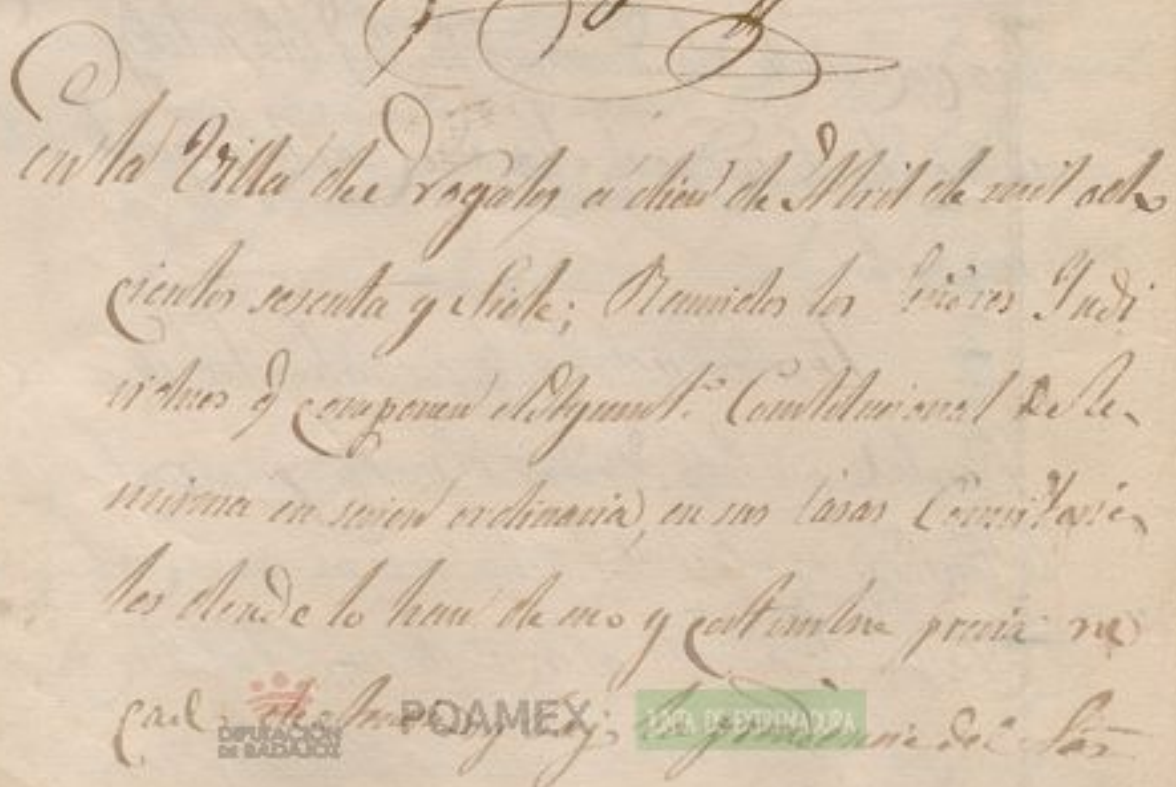 En la Villa de Nogales a diez de Abril de mil ocho
cientos sesenta y Siete; Reunidos los Señores Yndi
viduos q componen el Ayunt.º Constitucional de la
misma en sesion ordinaria, en sus Casas Consistoria
les donde lo han de uso y costumbre previa
del Sor
DIPUTACIÓN
DE BADAJOZ
POAMEX
JUNTA DE EXTREMADURA